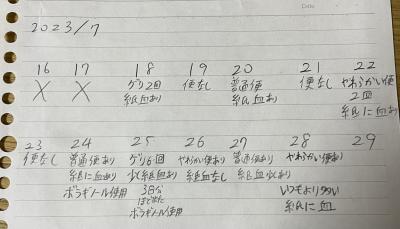 2023/7
16 17 18 19 20 21 22
X X ゲリ2回 便なし 普通便 便なし やわらかい便
紙血あり 紙血あり 2回
紙に血あり
23 24 25 26 27 28 29
便なし 普通便あり ゲリ6回 やわらかい便あり 普通便あり やわらかい便あり
紙に血あり 少し紙血あり 紙血なし 紙血少あり いつもより多い
ボラギノール使用 3日分 紙に血
ボラギノール使用